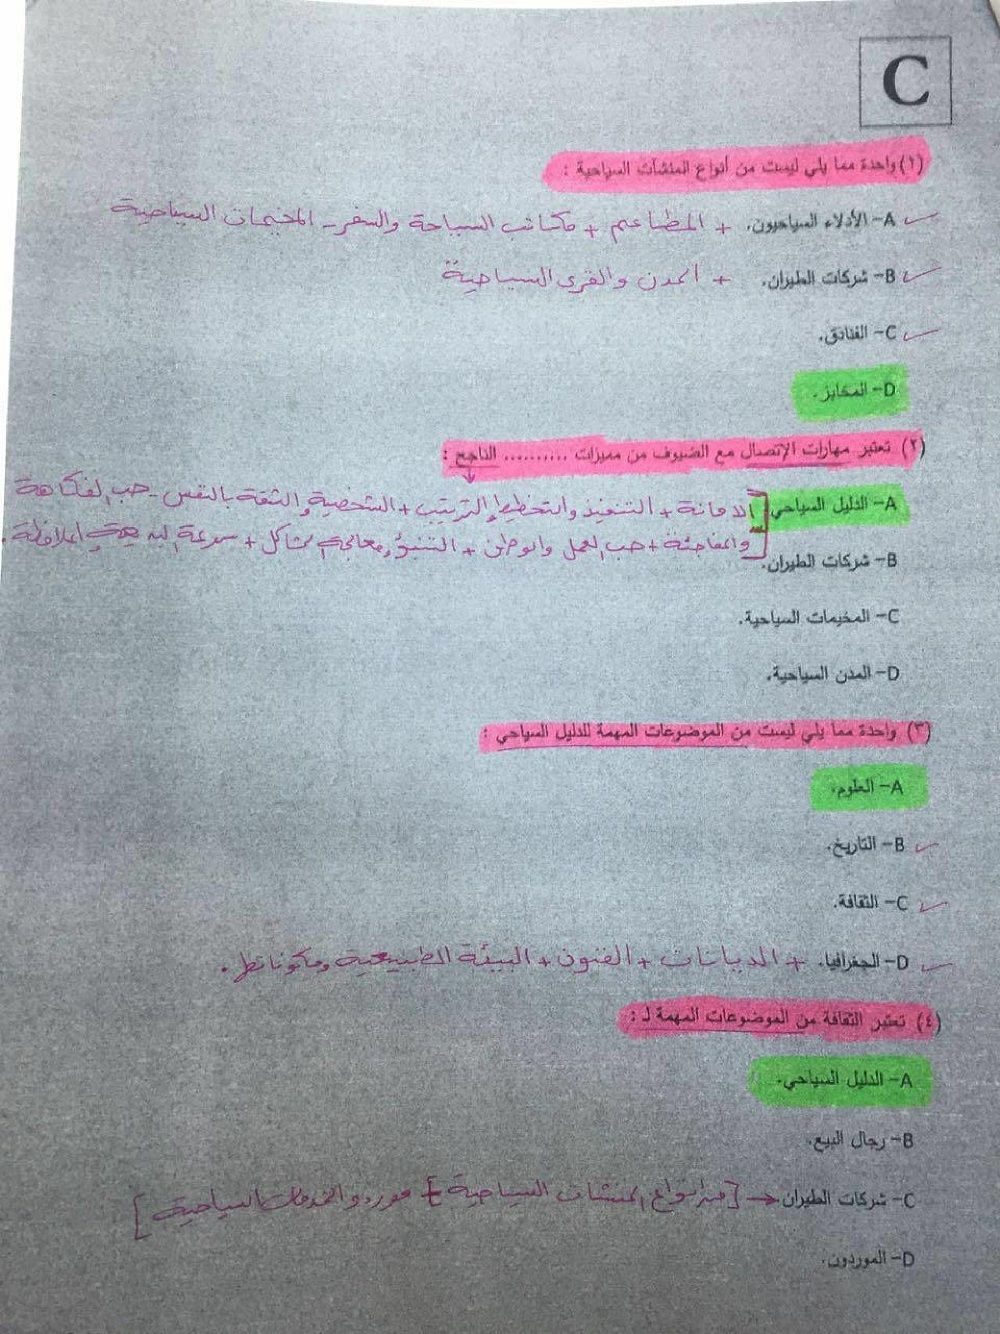 C
(١) واحدة مما يلي ليست من أنواع المنشآت السياحية :
A- الأدلاء السياحيون. + المطاعم + مكاتب السياحة والسفر - المخيمات السياحية
B- شركات الطيران. + المدن والقرى السياحية
C- الفنادق.
D- المخابز.
(٢) تعتبر مهارات الإتصال مع الضيوف من مميزات .......... الناجح :
A- الدليل السياحي [الأمانة + التنفيذ والتخطيط والترتيب + الشخصية والثقة بالنفس - حب الفكاهة
والمفاجئة + حب العمل والوطن + التنبؤ ومعالجة المشاكل + سرعة البديهة والملاحظة.
B- شركات الطيران.
C- المخيمات السياحية.
D- المدن السياحية.
(٣) واحدة مما يلي ليست من الموضوعات المهمة للدليل السياحي :
A- العلوم.
B- التاريخ.
C- الثقافة.
D- الجغرافيا. + الديانات + الفنون + البيئة الطبيعية ومكوناتها.
(٤) تعتبر الثقافة من الموضوعات المهمة لـ :
A- الدليل السياحي.
B- رجال البيع.
C- شركات الطيران → [من أنواع المنشآت السياحية] [موردو الخدمات السياحية]
D- الموردون.